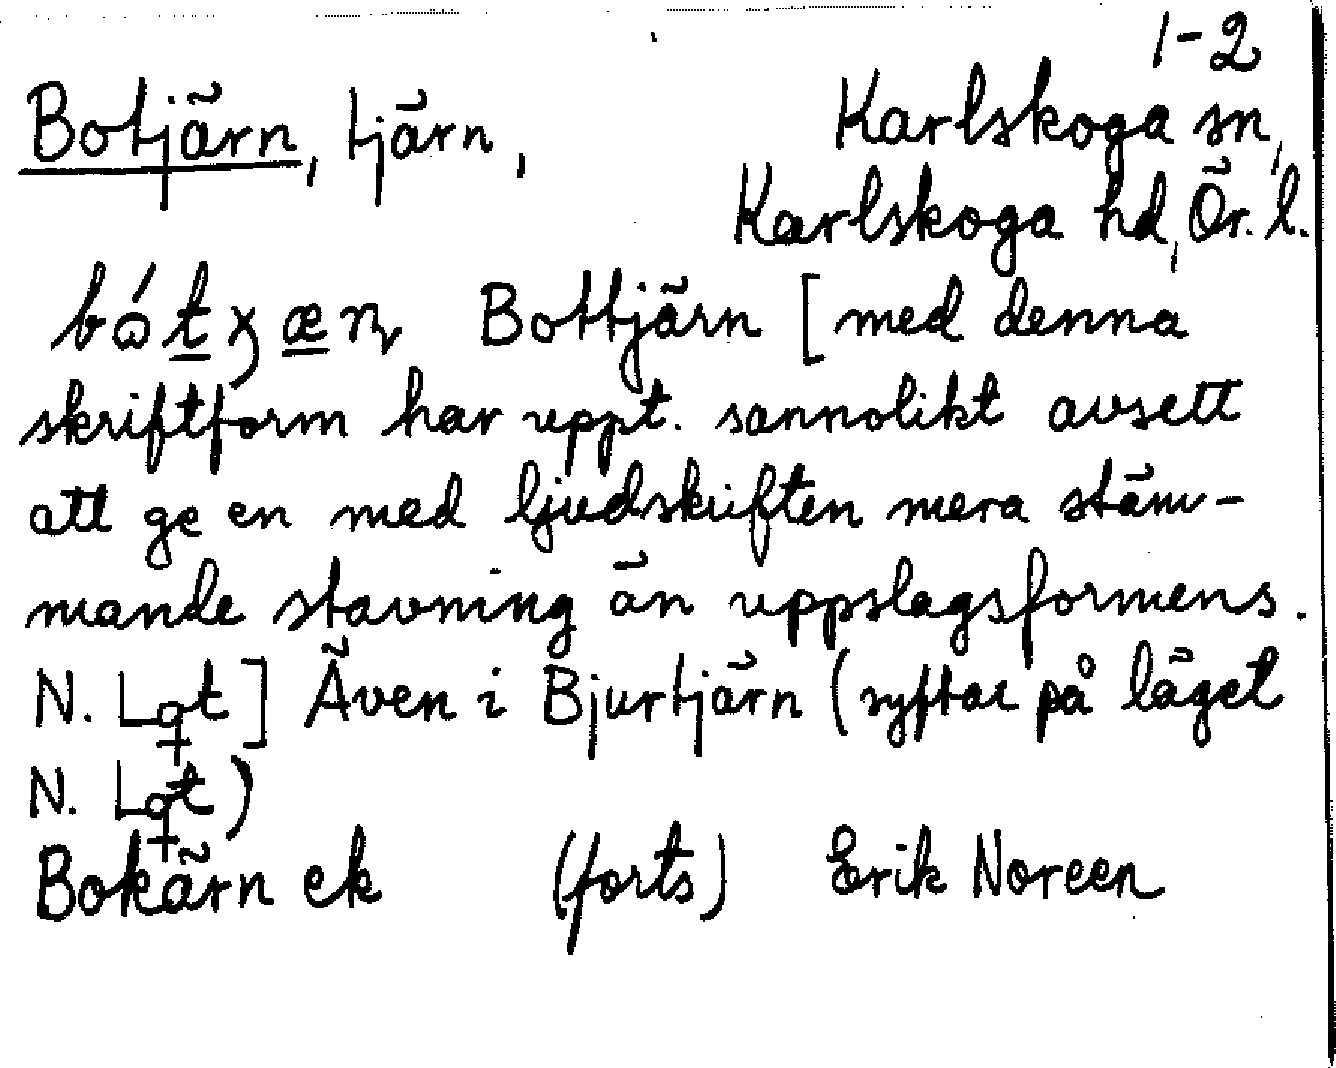 1-2
Botjärn, tjärn, Karlskoga sn,
Karlskoga hd, Ör. l.
Bottjärn [med denna
skriftform har uppt. sannolikt avsett
att ge en med ljudskriften mera stäm-
mande stavning än uppslagsformens.
N. Lqt] Även i Bjurtjärn (syftar på läget
N. Lqt)
Bokärn ek (forts) Erik Noreen